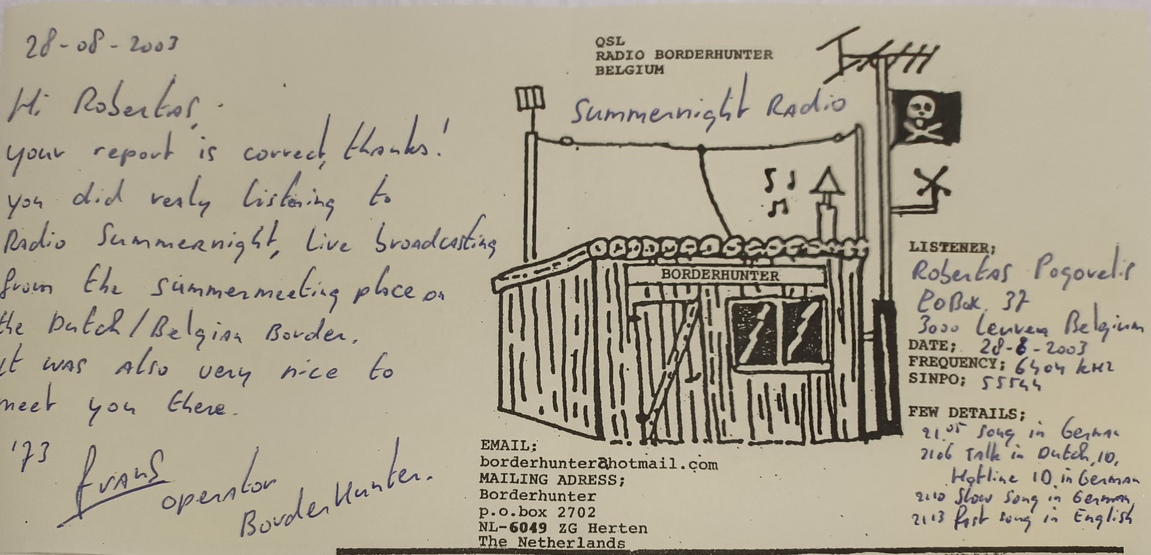 28-08-2003
Hi Robertas,
your report is correct, thanks!
you did realy listening to
Radio Summernight, Live broadcasting
from the summermeeting place on
the Dutch/Belgian Border.
it was also very nice to
meet you there.
'73
operator
BorderHunter.
QSL
RADIO BORDERHUNTER
BELGIUM
Summernight Radio
BORDERHUNTER
EMAIL;
borderhunter@hotmail.com
MAILING ADRESS;
Borderhunter
p.o.box 2702
NL-6049 ZG Herten
The Netherlands
LISTENER;
Robertas Pogorelis
POBox 37
3000 Leuven Belgium
DATE; 28-6-2003
FREQUENCY; 6404 kHz
SINPO; 55544
FEW DETAILS;
21.05 song in German
2106 Talk in Dutch, ID,
Hotline ID in German
2110 Slow song in German,
2113 fast song in English